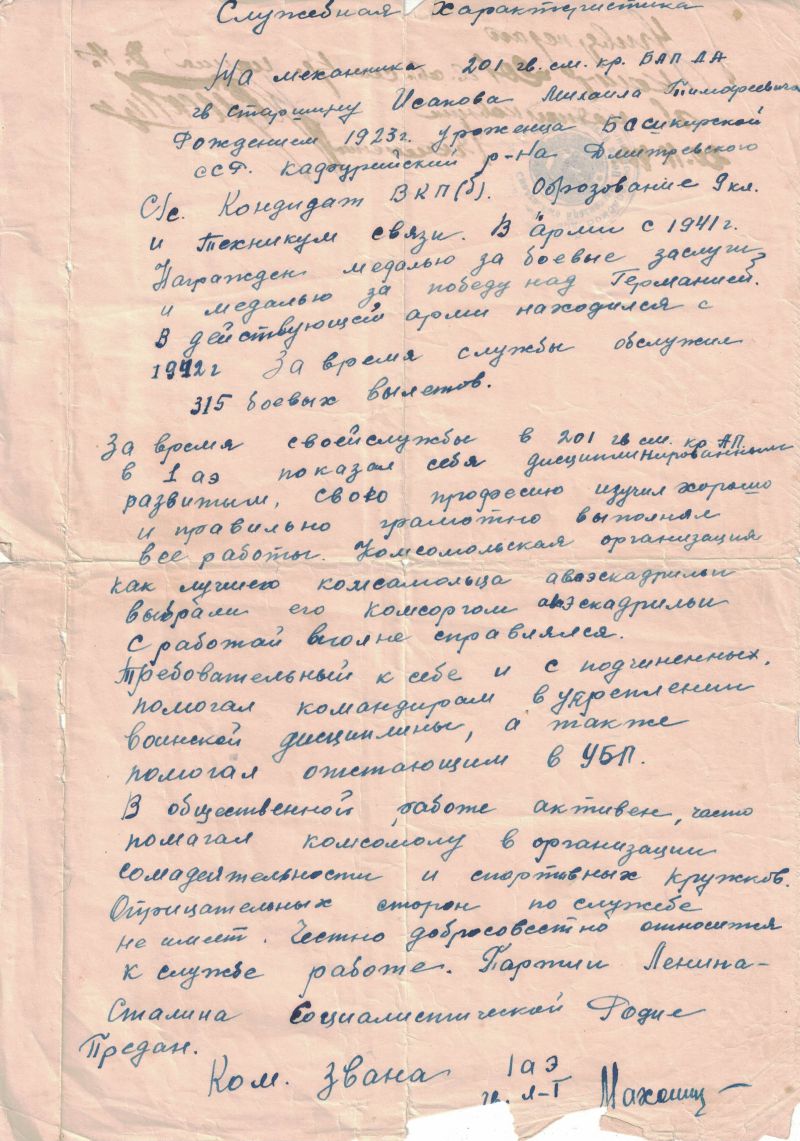 Служебная характеристика
На механика 201 гв. см. кр. БАП ДА
гв старшину Исакова Михаила Тимофеевича
Рождением 1923г. уроженца Башкирской
ССР. р-на Дмитревского
С/с. Кондидат ВКП(б). Оброзование 9 кл.
и техникум связи. В арми с 1941 г.
Награжден медалью за боевые заслуги
и медалью за победу над Германией.
В действующей арми находился с
1942г За время службы обслужил
315 боевых вылетов.
За время своей службы в 201 гв см. кр АП
в 1 аэ показал себя дисциплинированным
развитым, свою професию изучил хорошо
и правильно грамотно выполнял
все работы. Комсомольская организация
как лучшего комсамольца авоэскадрильи
выбрали его комсоргом авэскадрильи
С работай вполне справлялся.
Требовательный к себе и с подчиненных.
помогал командирам в укреплении
воинской дисциплины, а также
помогал отстающим в УБП.
В общественной работе активен, часто
помагал комсомолу в организации
сомадеятельности и спортивных кружков.
Отрицательных сторон по службе
не имеет. Честно добросовестно относится
к службе работе. Партии Ленина-
Сталина Социалистической Родие
Предан.
Ком. звана 1аэ
гв. л-т